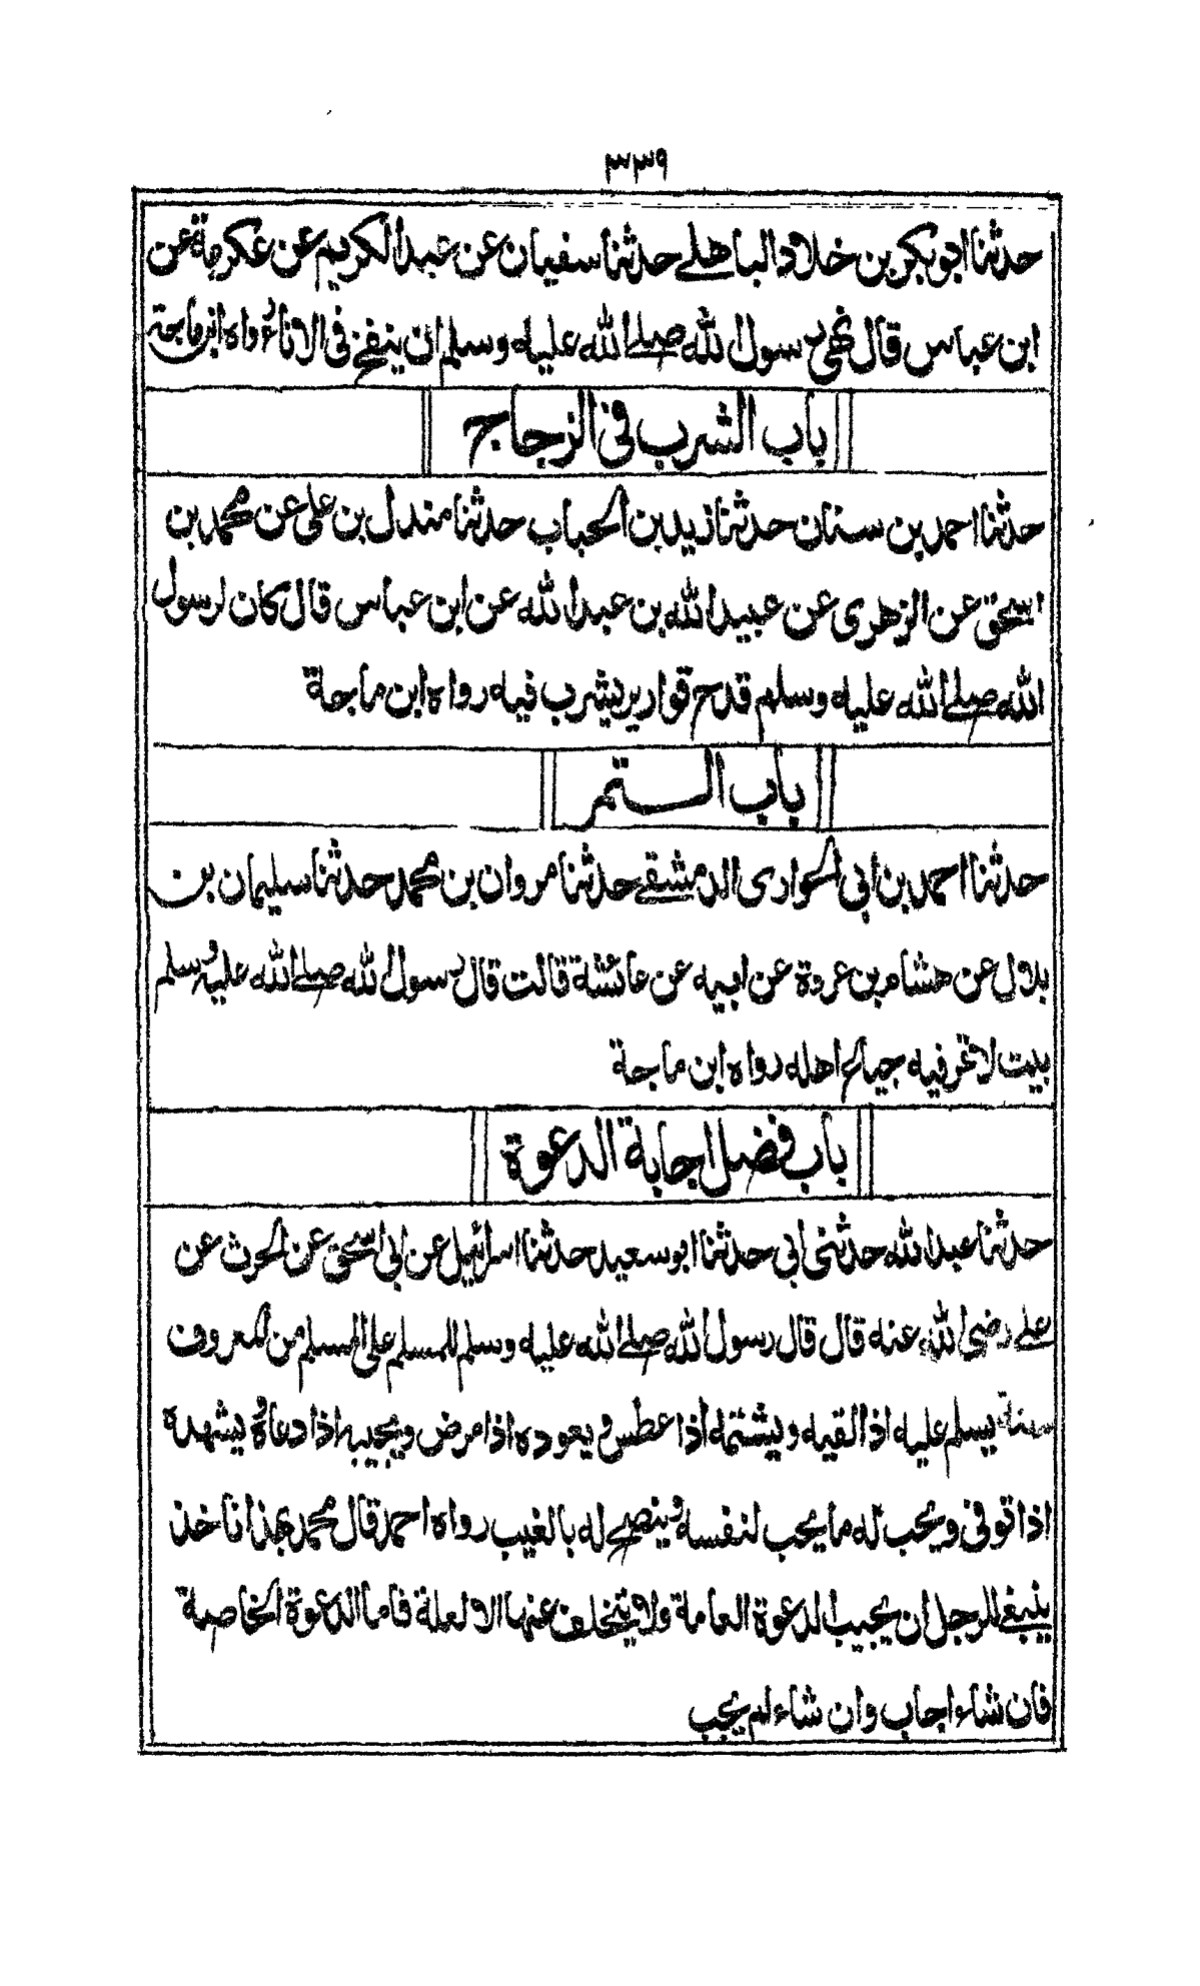 ٣٣٩
حدثنا ابو بكر بن خلاد الباهلے حدثنا سفيان عن عبد الكريم عن عكرمة عن
ابن عباس قال نهى رسول الله صلے الله عليه وسلم ان ينفخ فى الاناء رواه ابن ماجة
باب الشرب فى الزجاج
حدثنا احمد بن سنان حدثنا زيد بن الحباب حدثنا مندل بن على عن محمد بن
اسحق عن الزهرى عن عبيد الله بن عبد الله عن ابن عباس قال كان لرسول
الله صلے الله عليه وسلم قدح قوارير يشرب فيه رواه ابن ماجة
باب التمر
حدثنا احمد بن ابى الحوارى الدمشقے حدثنا مروان بن محمد حدثنا سليمان بن
بلال عن هشام بن عروة عن ابيه عن عائشة قالت قال رسول الله صلے الله عليه وسلم
بيت لا تمر فيه جياع اهله رواه ابن ماجة
باب فضل اجابة الدعوة
حدثنا عبد الله حدثنى ابى حدثنا ابو سعيد حدثنا اسرائيل عن ابى اسحق عن الحرث عن
علے رضى الله عنه قال قال رسول الله صلے الله عليه وسلم للمسلم على المسلم من المعروف
ستة يسلم عليه اذا لقيه ويشتمه اذا عطس ويعوده اذا مرض ويجيبه اذا دعاه ويشهده
اذا توفى ويحب له ما يحب لنفسه وينصح له بالغيب رواه احمد قال محمد بهذا ناخذ
ينبغے للرجل ان يجيب الدعوة العامة ولا يتخلف عنها الا لعلة فاما الدعوة الخاصة
فان شاء اجاب وان شاء لم يجب